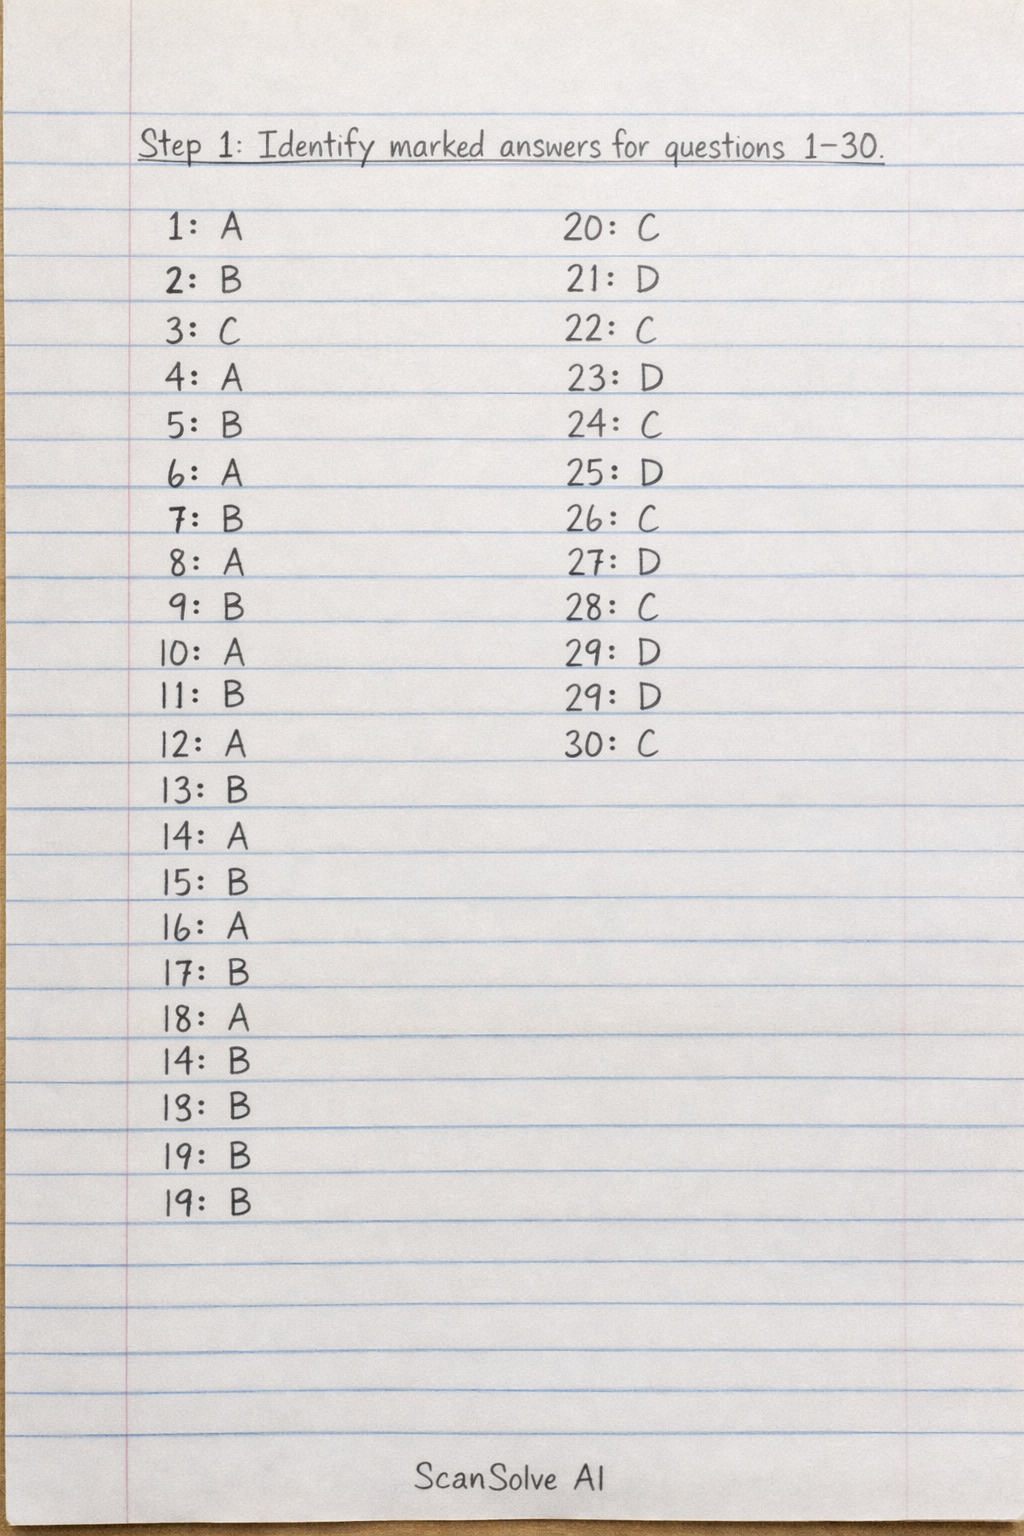 Step 1: Identify marked answers for questions 1-30.
1: A
2: B
3: C
4: A
5: B
6: A
7: B
8: A
9: B
10: A
11: B
12: A
13: B
14: A
15: B
16: A
17: B
18: A
14: B
18: B
19: B
19: B
20: C
21: D
22: C
23: D
24: C
25: D
26: C
27: D
28: C
29: D
29: D
30: C
ScanSolve AI